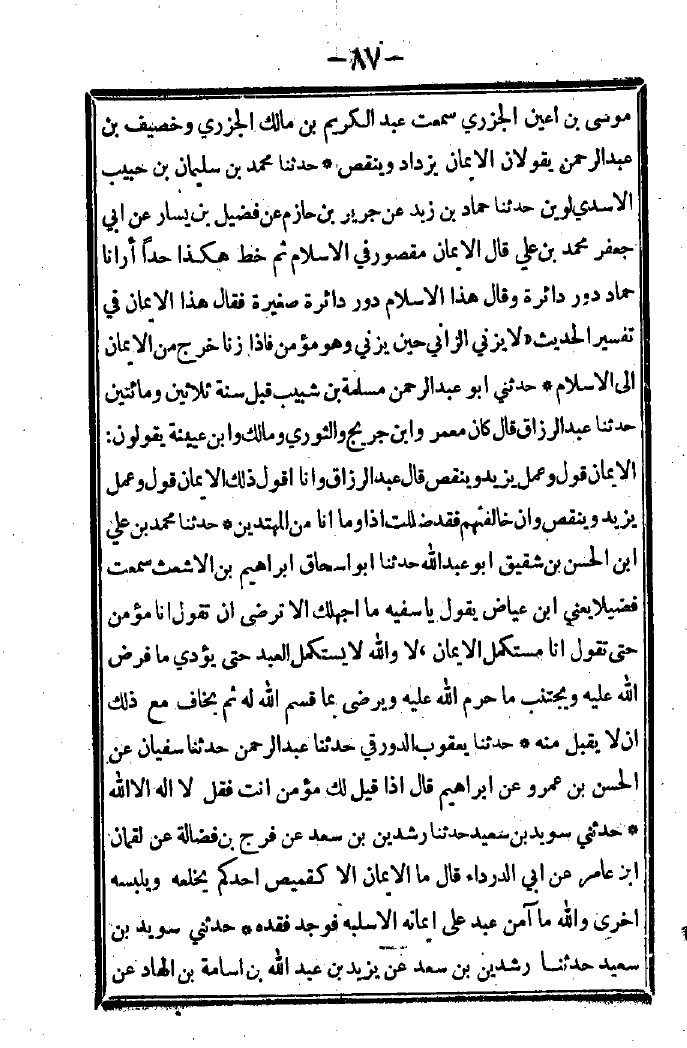 -٨٧-
موسى بن اعين الجزري سمعت عبد الكريم بن مالك الجزري وخصيف بن
عبدالرحمن يقولان الايمان يزداد وينقص * حدثنا محمد بن سليمان بن حبيب
الاسدي لوين حدثنا حماد بن زيد عن جرير بن حازم عن فضيل بن يسار عن ابي
جعفر محمد بن علي قال الايمان مقصور في الاسلام ثم خط هكذا حداً أرانا
حماد دور دائرة وقال هذا الاسلام دور دائرة صغيرة فقال هذا الايمان في
تفسير الحديث «لا يزني الزاني حين يزني وهو مؤمن فاذا زنا خرج من الايمان
الى الاسلام * حدثني ابو عبدالرحمن مسلمة بن شبيب قبل سنة ثلاثين ومائتين
حدثنا عبدالرزاق قال كان معمر وابن جريج والثوري ومالك وابن عيينة يقولون:
الايمان قول وعمل يزيد وينقص قال عبدالرزاق وانا اقول ذلك الايمان قول وعمل
يزيد وينقص وان خالفتهم فقد ضللت اذا وما انا من المهتدين * حدثنا محمد بن علي
ابن الحسن بن شقيق ابو عبدالله حدثنا ابو اسحاق ابراهيم بن الاشعث سمعت
فضيلا يعني ابن عياض يقول يا سفيه ما اجهلك الا ترضى ان تقول انا مؤمن
حتى تقول انا مستكمل الايمان ، لا والله لا يستكمل العبد حتى يؤدي ما فرض
الله عليه ويجتنب ما حرم الله عليه ويرضى بما قسم الله له ثم يخاف مع ذلك
ان لا يقبل منه * حدثنا يعقوب الدورقي حدثنا عبدالرحمن حدثنا سفيان عن
الحسن بن عمرو عن ابراهيم قال اذا قيل لك مؤمن انت فقل لا اله الا الله
* حدثني سويد بن سعيد حدثنا رشدين بن سعد عن فرج بن فضالة عن لقمان
ابن عامر عن ابي الدرداء قال ما الايمان الا كقميص احدكم يخلعه ويلبسه
اخرى والله ما آمن عبد على ايمانه الا سلبه فوجد فقده * حدثني سويد بن
سعيد حدثنا رشدين بن سعد عن يزيد بن عبد الله بن اسامة بن الهاد عن